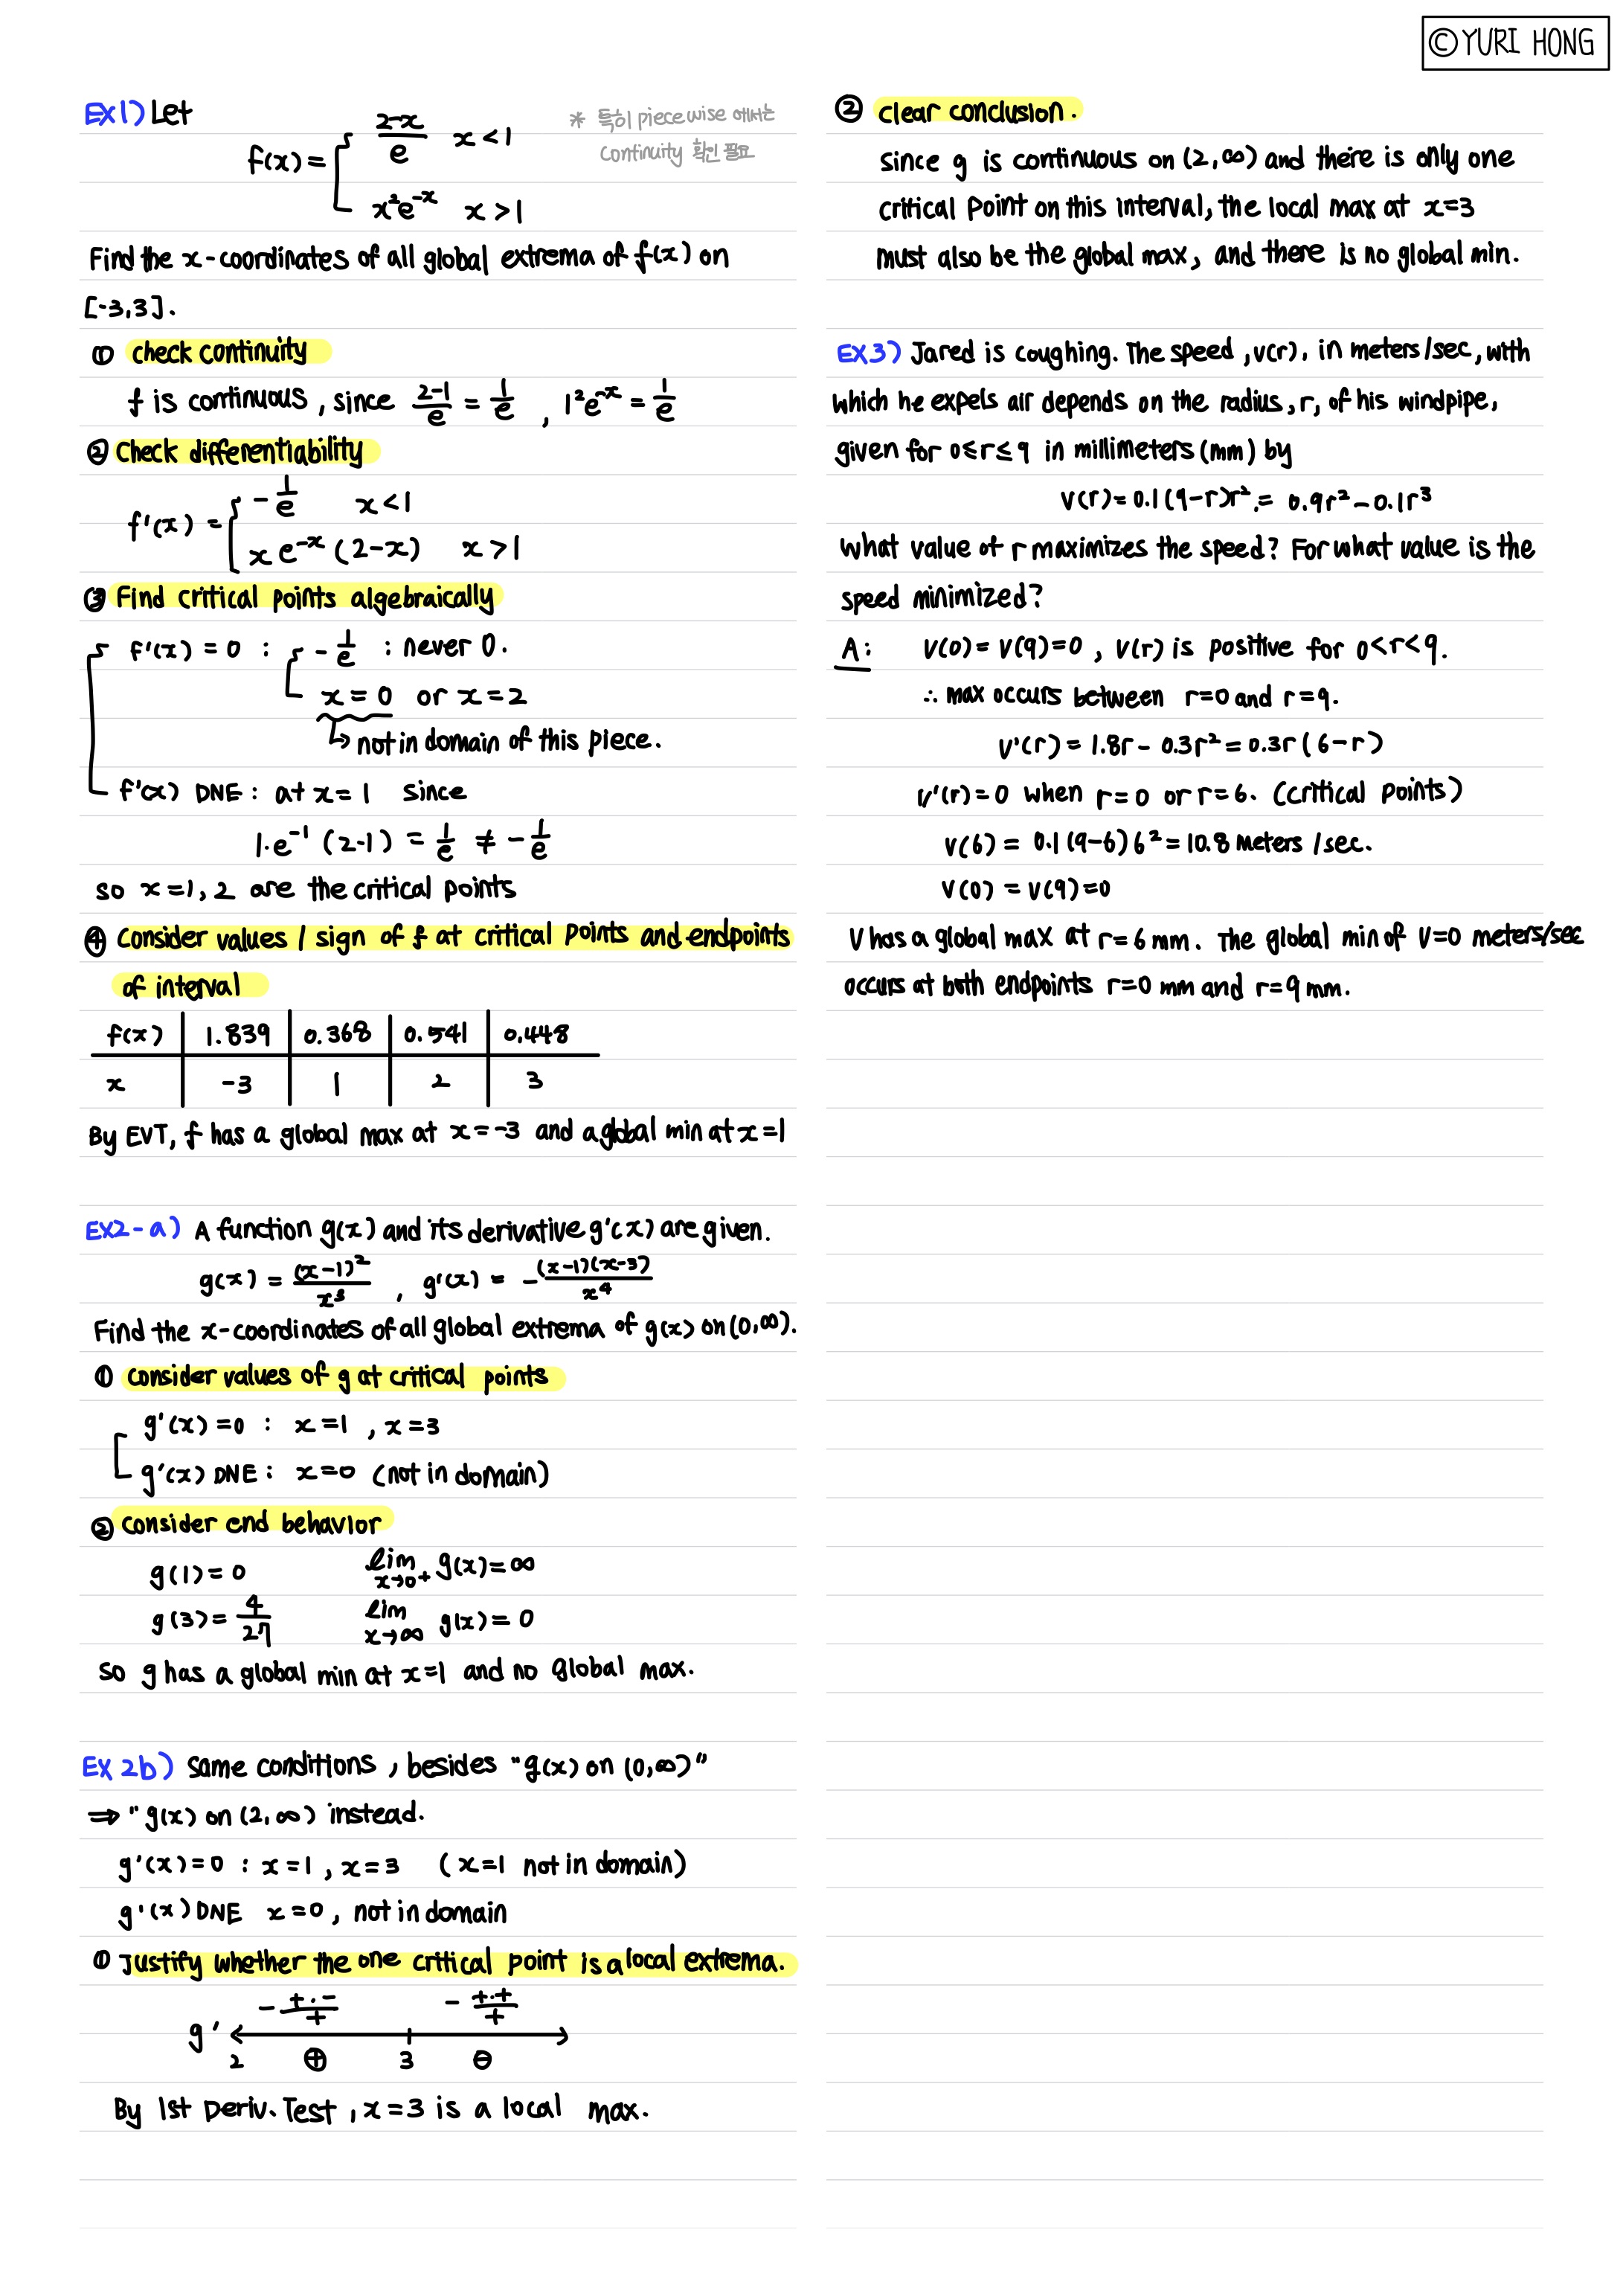 © YURI HONG
EX1) Let
f(x) = { (2-x)/e   x < 1
x²e^-x   x > 1
* 특히 piecewise 에서는
continuity 확인 필요
Find the x-coordinates of all global extrema of f(x) on
[-3,3].
① check continuity
f is continuous, since (2-1)/e = 1/e , 1²e^-x = 1/e
② Check differentiability
f'(x) = { -1/e   x < 1
xe^-x (2-x)   x > 1
③ Find critical points algebraically
f'(x) = 0 : { -1/e : never 0.
x = 0 or x = 2
↳ not in domain of this piece.
f'(x) DNE : at x = 1 since
1·e^-1 (2-1) = 1/e ≠ -1/e
so x = 1, 2 are the critical points
④ Consider values / sign of f at critical points and endpoints
of interval
f(x) | 1.839 | 0.368 | 0.541 | 0.448
x | -3 | 1 | 2 | 3
By EVT, f has a global max at x = -3 and a global min at x = 1
EX2-a) A function g(x) and its derivative g'(x) are given.
g(x) = (x-1)²/x³ , g'(x) = -(x-1)(x-3)/x⁴
Find the x-coordinates of all global extrema of g(x) on (0,∞).
① consider values of g at critical points
g'(x) = 0 : x = 1 , x = 3
g'(x) DNE : x = 0 (not in domain)
② consider end behavior
g(1) = 0   lim x→0⁺ g(x) = ∞
g(3) = 4/27   lim x→∞ g(x) = 0
so g has a global min at x = 1 and no global max.
EX 2b) Same conditions , besides "g(x) on (0,∞)"
⇒ "g(x) on (2,∞) instead.
g'(x) = 0 : x = 1 , x = 3   (x = 1 not in domain)
g'(x) DNE x = 0 , not in domain
① Justify whether the one critical point is a local extrema.
- +·-/+   - +·+/+
g'
2 ⊕ 3 ⊖
By 1st Deriv. Test , x = 3 is a local max.
② clear conclusion.
since g is continuous on (2,∞) and there is only one
critical point on this interval, the local max at x=3
must also be the global max, and there is no global min.
EX3) Jared is coughing. The speed, v(r), in meters/sec, with
which he expels air depends on the radius, r, of his windpipe,
given for 0≤r≤9 in millimeters (mm) by
v(r) = 0.1(9-r)r² = 0.9r² - 0.1r³
what value of r maximizes the speed? For what value is the
speed minimized?
A: v(0) = v(9) = 0 , v(r) is positive for 0<r<9.
∴ max occurs between r=0 and r=9.
v'(r) = 1.8r - 0.3r² = 0.3r(6-r)
v'(r) = 0 when r=0 or r=6. (critical points)
v(6) = 0.1(9-6)6² = 10.8 meters/sec.
v(0) = v(9) = 0
V has a global max at r=6 mm. The global min of v=0 meters/sec
occurs at both endpoints r=0 mm and r=9 mm.